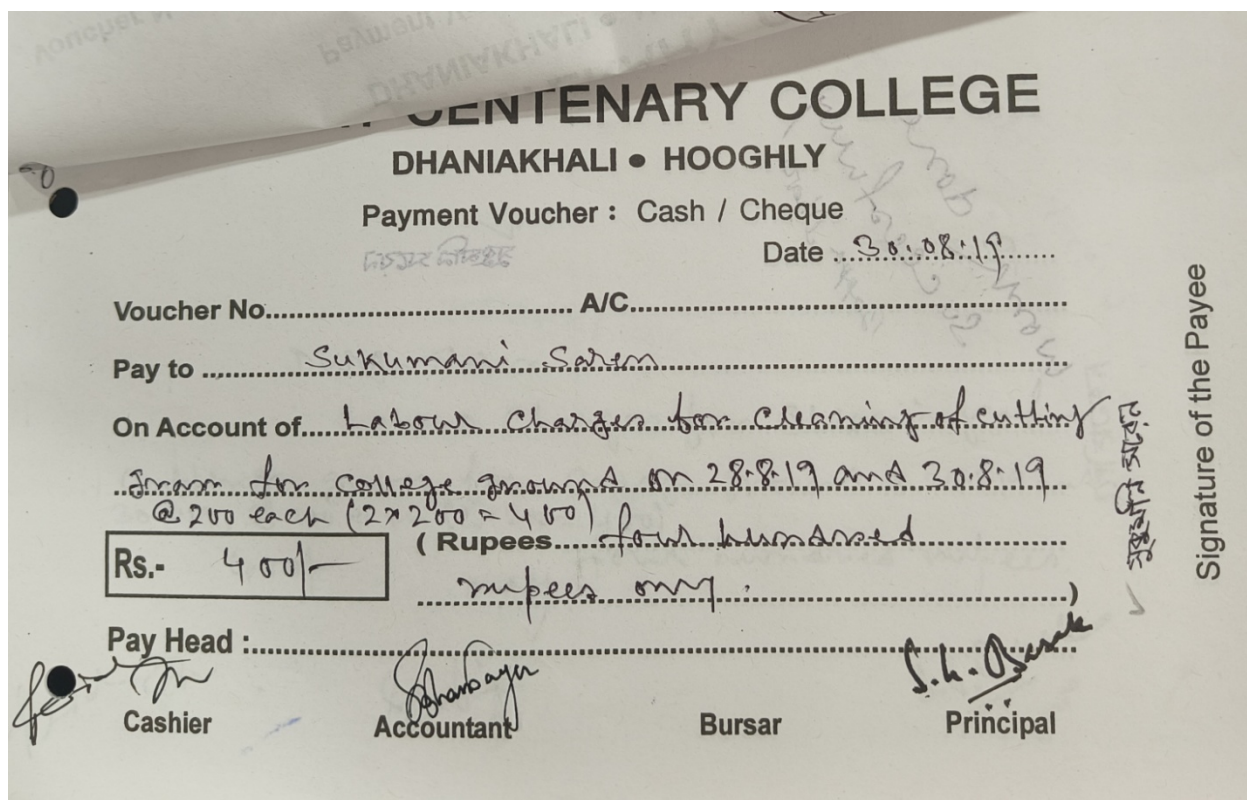 CENTENARY COLLEGE
DHANIAKHALI • HOOGHLY
Payment Voucher : Cash / Cheque
Date ...30.08.19.......
Voucher No.................................. A/C..................................................
Pay to ............Sukumani Saren..................................................
On Account of.....Labour charges for cleaning of cutting
for college ground on 28.8.19 and 30.8.19
@ 200 each (2x200 = 400)
Rs.- 400/- ( Rupees.......four hundred.................
rupees only.......................................)
Pay Head :...............................................................................
S.K. Basak
Cashier Accountant Bursar Principal
Signature of the Payee